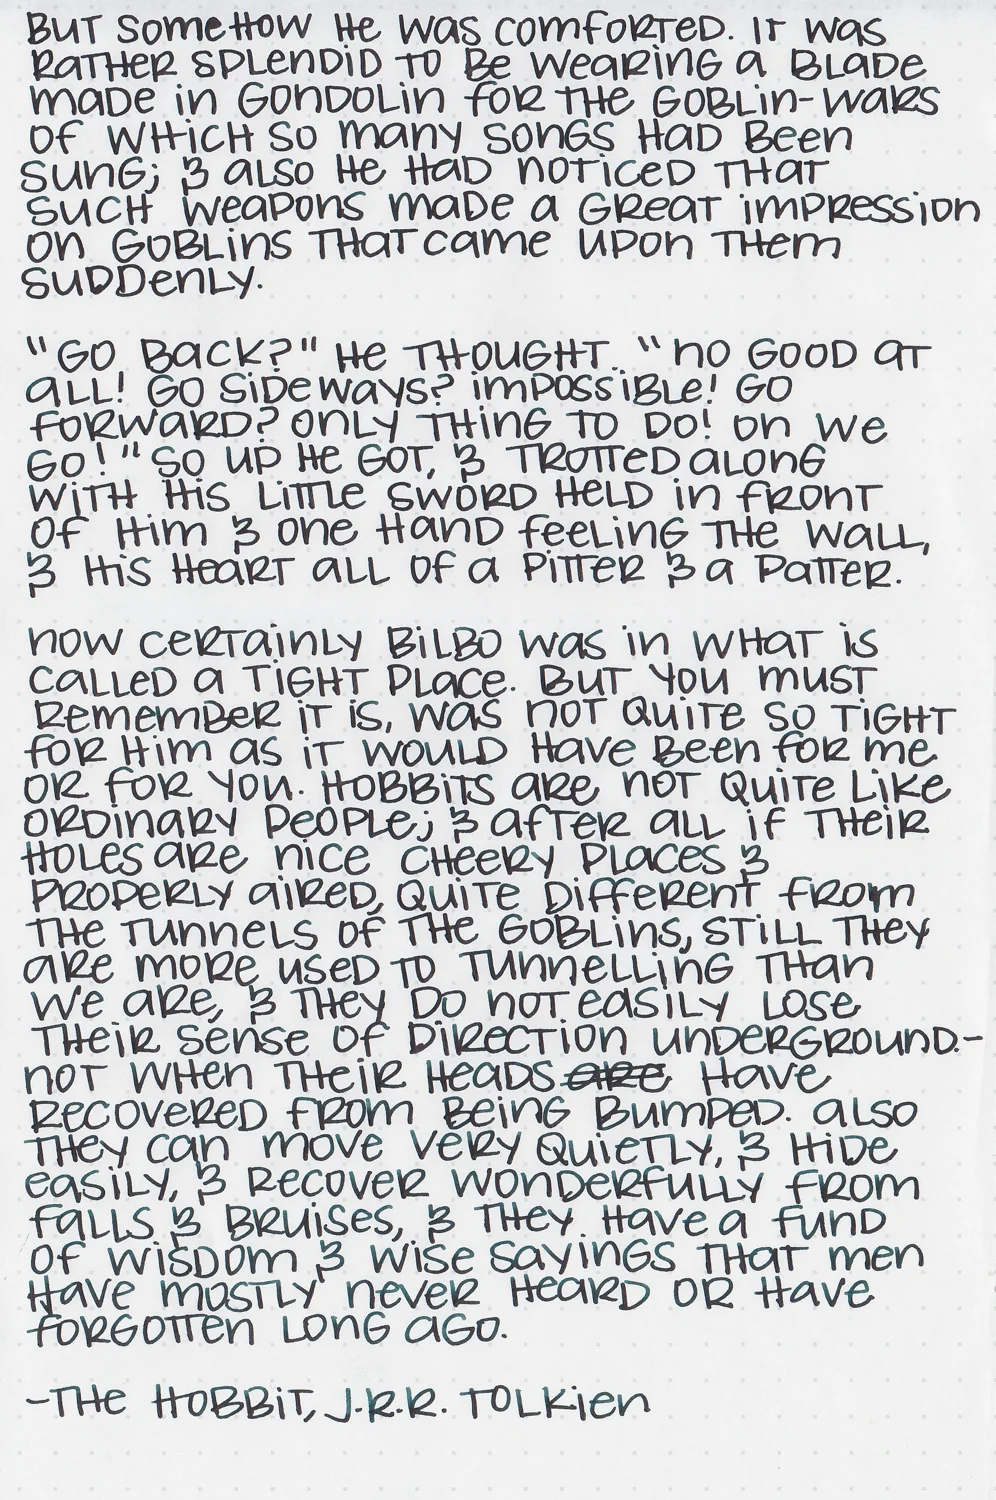 But somehow he was comforted. It was
rather splendid to be wearing a blade
made in Gondolin for the goblin-wars
of which so many songs had been
sung; & also he had noticed that
such weapons made a great impression
on goblins that came upon them
suddenly.

"Go back?" he thought. "No good at
all! Go sideways? Impossible! Go
forward? Only thing to do! On we
go!" So up he got, & trotted along
with his little sword held in front
of him & one hand feeling the wall,
& his heart all of a pitter & a patter.

Now certainly Bilbo was in what is
called a tight place. But you must
remember it is, was not quite so tight
for him as it would have been for me
or for you. Hobbits are not quite like
ordinary people; & after all if their
holes are nice cheery places &
properly aired, quite different from
the tunnels of the goblins, still they
are more used to tunnelling than
we are, & they do not easily lose
their sense of direction underground.-
not when their heads are have
recovered from being bumped. Also
they can move very quietly, & hide
easily, & recover wonderfully from
falls & bruises, & they have a fund
of wisdom & wise sayings that men
have mostly never heard or have
forgotten long ago.

-The Hobbit, J.R.R. Tolkien